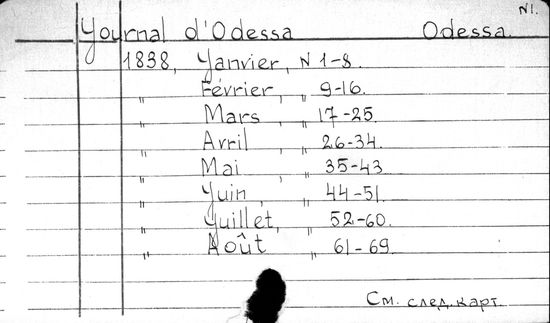 N1.
Journal d'Odessa Odessa.
1838, Janvier, N 1-8.
" Février, " 9-16.
" Mars, " 17-25.
" Avril, " 26-34.
" Mai, " 35-43
" Juin, " 44-51.
" Juillet, " 52-60.
" Août " 61-69.
См. след. карт.